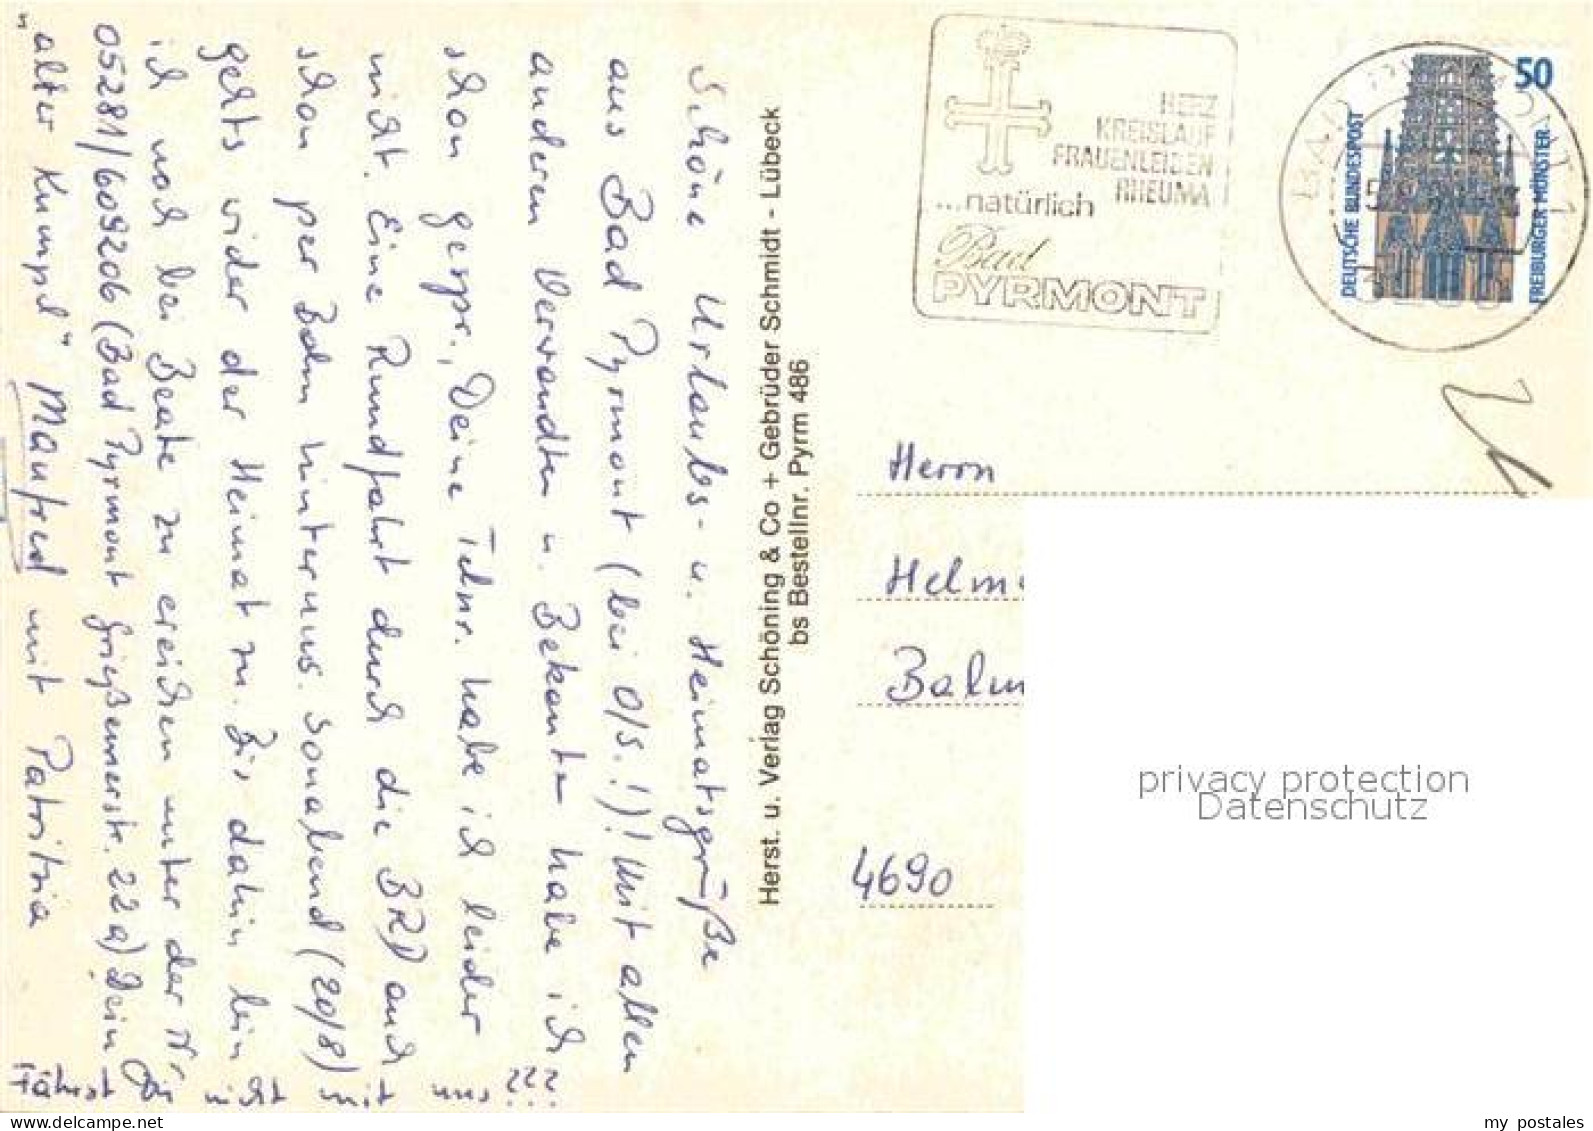 Schöne Urlaubs- u. Heimatsgrüße
aus Bad Pyrmont (bei O/S.!)! Mit allen
anderen Verwandten u. Bekannten habe ich
schon gespr., Deine Telnr. habe ich leider
nicht. Eine Rundfahrt durch die BRD auch
schon per Bahn hinter uns. Sonnabend (20/8)
gehts wider der Heimat zu. Bis dahin bin
ich noch bei Beate zu ereichen unter der Nr.
05281/609206 (Bad Pyrmont Grießemerstr. 22a) Dein
"alter Kumpel" Manfred mit Patritzia
Fährst Du nicht mit uns???
Herst. u. Verlag Schöning & Co + Gebrüder Schmidt - Lübeck
bs Bestellnr. Pyrm 486
HERZ
KREISLAUF
FRAUENLEIDEN
RHEUMA
...natürlich
Bad
PYRMONT
50
DEUTSCHE BUNDESPOST
FREIBURGER MÜNSTER
BAD PYRMONT 1
Herrn
Helm
Balm
4690
privacy protection
Datenschutz
my postales